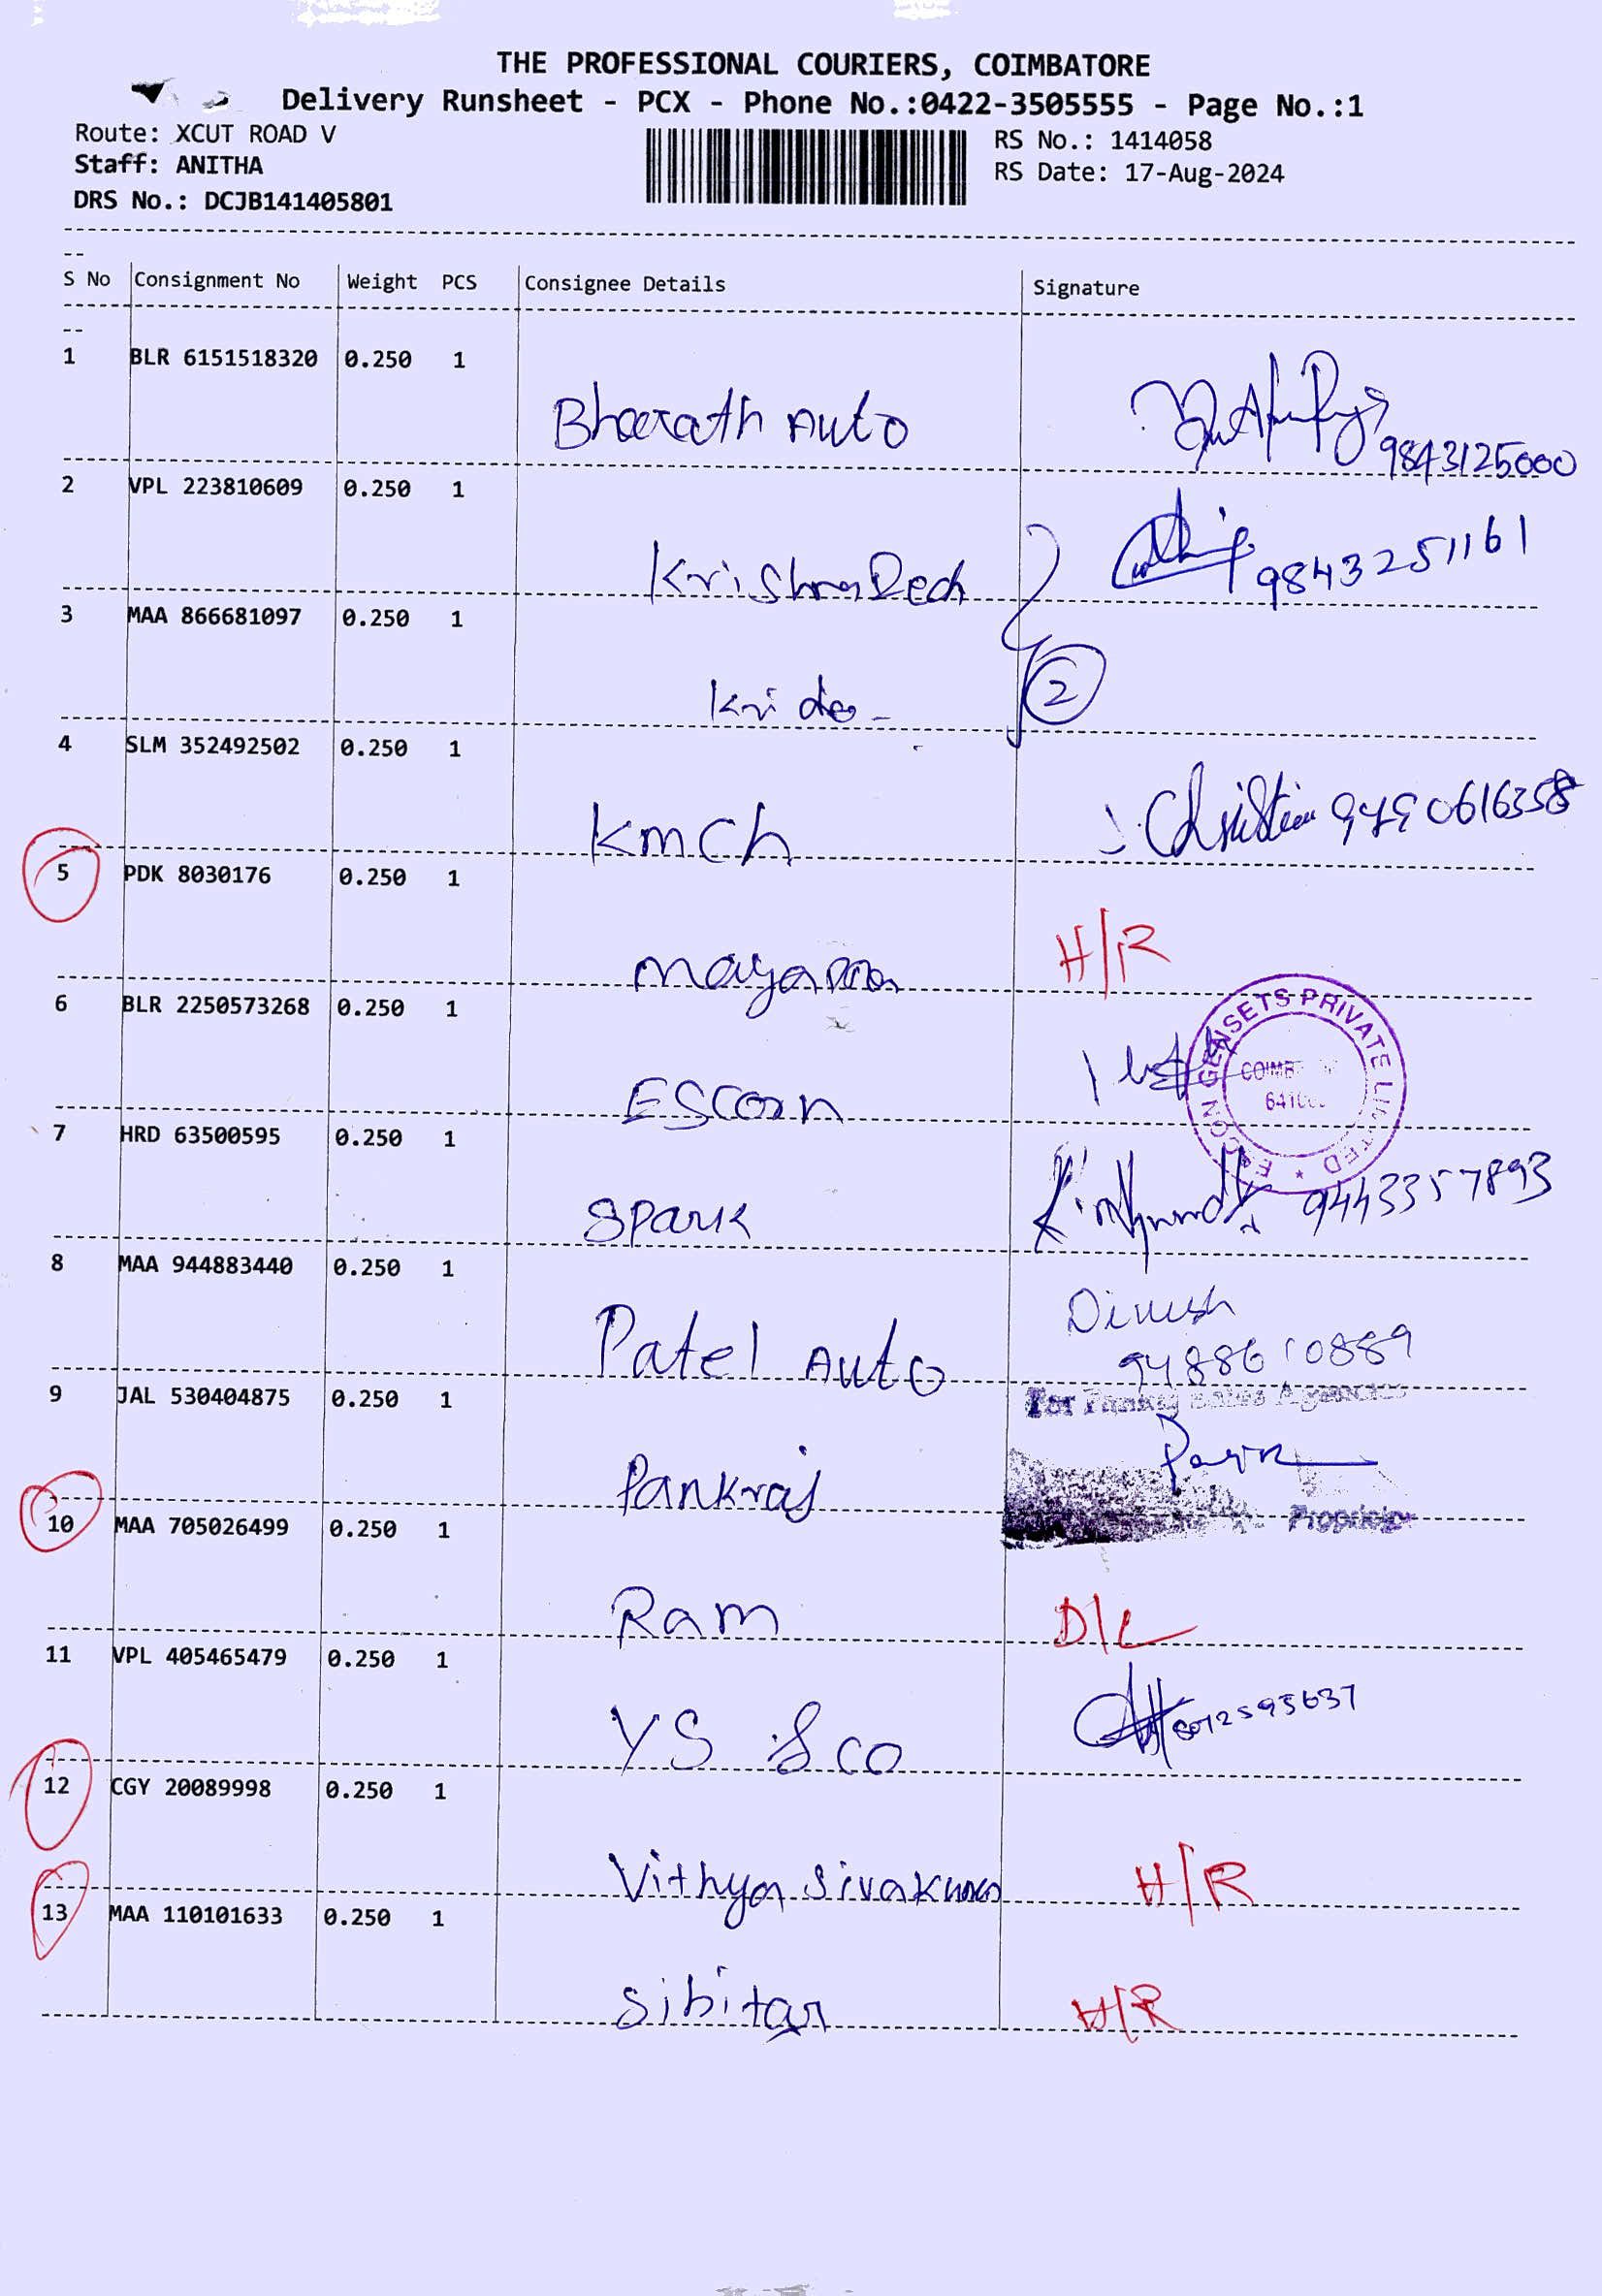 THE PROFESSIONAL COURIERS, COIMBATORE
Delivery Runsheet - PCX - Phone No.:0422-3505555 - Page No.:1
Route: XCUT ROAD V
RS No.: 1414058
Staff: ANITHA
RS Date: 17-Aug-2024
DRS No.: DCJB141405801
S No Consignment No Weight PCS Consignee Details Signature
1 BLR 6151518320 0.250 1
Bharath Auto 9843125000
2 VPL 223810609 0.250 1
Krishna 9843251161
3 MAA 866681097 0.250 1
Kri do - 2
4 SLM 352492502 0.250 1
KMCh
5 PDK 8030176 0.250 1
H/R
6 BLR 2250573268 0.250 1
GENSETS PRIVATE LIMITED
Escon
7 HRD 63500595 0.250 1
Spark 9443357893
8 MAA 944883440 0.250 1
Dinesh
Patel Auto 9488610889
9 JAL 530404875 0.250 1
For Sales Agencies
Pankraj
10 MAA 705026499 0.250 1
Ram D/L
11 VPL 405465479 0.250 1
YS & co
12 CGY 20089998 0.250 1
Vithya H/R
13 MAA 110101633 0.250 1
Sibitar H/R